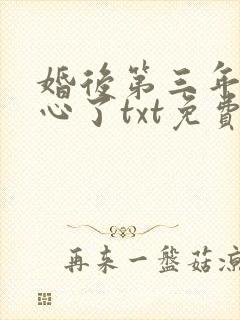 婚後第三年
心了txt免費
再来一盤菇涼